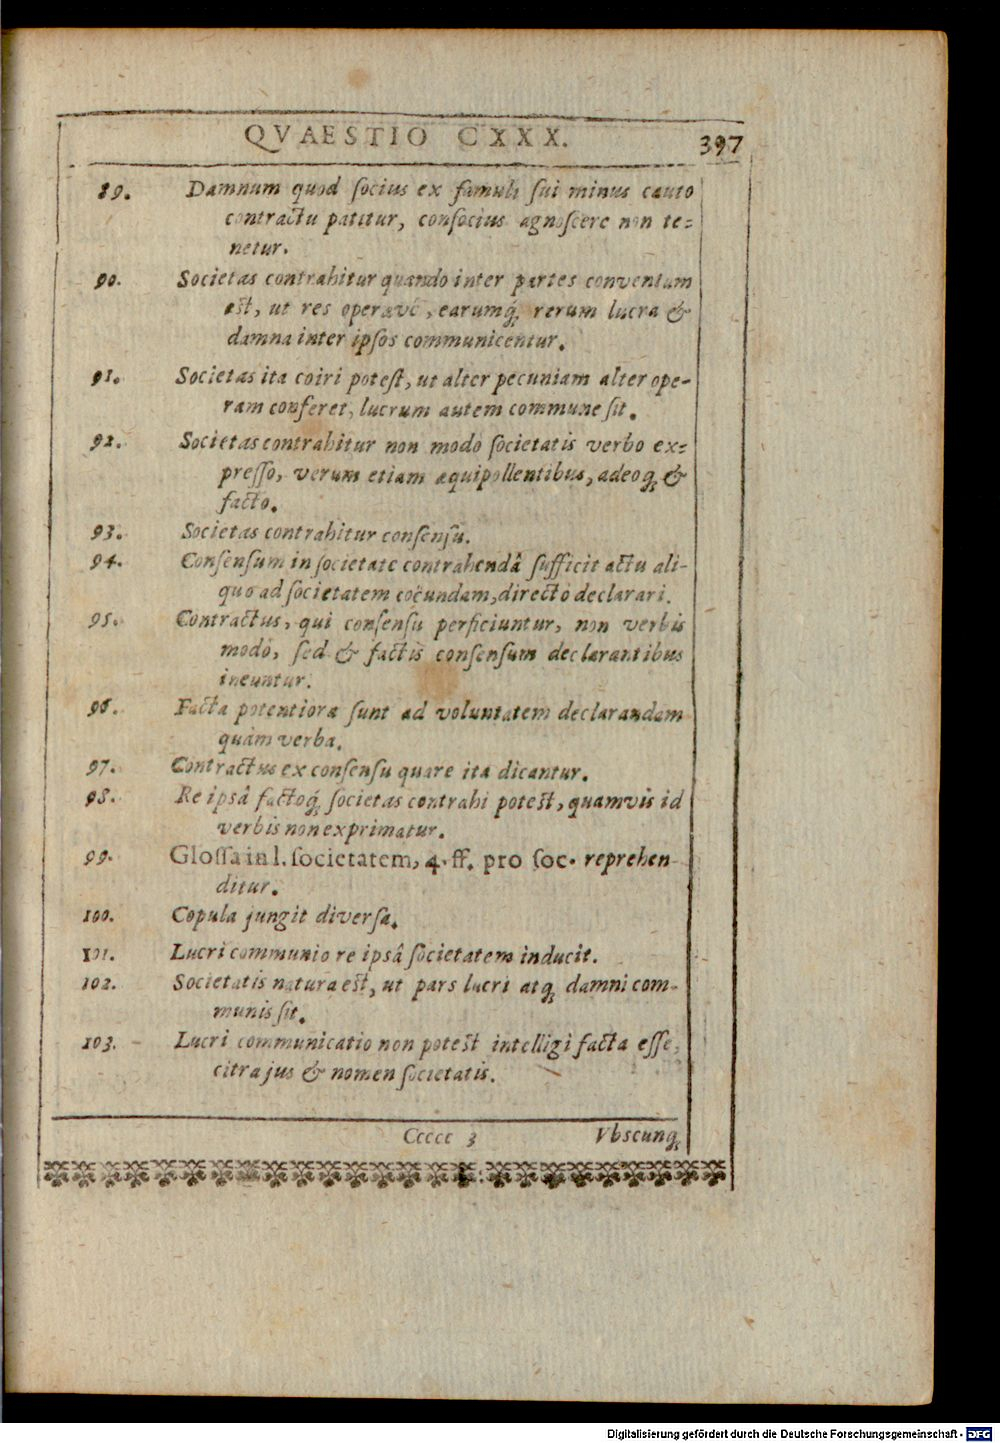 QVAESTIO CXXX. 397
89. Damnum quod ſocius ex famuli ſui minus cauto
contractu patitur, conſocius agnoſcere non te=
netur.
90. Societas contrahitur quando inter partes conventum
est, ut res operævè, earumq́; rerum lucra &
damna inter ipſos communicentur.
91. Societas ita coiri poteſt, ut alter pecuniam alter ope-
ram conferet, lucrum autem commune ſit.
92. Societas contrahitur non modò ſocietatis verbo ex=
preſſo, verum etiam æquipollentibus, adeoq; &
facto.
93. Societas contrahitur conſenſu.
94. Conſenſum in ſocietate contrahendâ ſufficit actu ali-
quo ad ſocietatem coëundam, directo declarari.
95. Contractus, qui conſenſu perficiuntur, non verbis
modò, ſed & factis conſenſum declarantibus
ineuntur.
96. Facta potentiora ſunt ad voluntatem declarandam
quàm verba.
97. Contractus ex conſenſu quare ita dicantur.
98. Re ipſâ factoq́; ſocietas contrahi potest, quamvis id
verbis non exprimatur.
99. Gloſſa in l. ſocietatem, 4. ff. pro ſoc. reprehen
ditur.
100. Copula jungit diverſa.
101. Lucri communio re ipſâ ſocietatem inducit.
102. Societatis natura est, ut pars lucri atq; damni com-
munis ſit.
103. Lucri communicatio non potest intelligi facta eſſe,
citra jus & nomen ſocietatis.
Ccccc 3 Vbicunq;
Digitalisierung gefördert durch die Deutsche Forschungsgemeinschaft - DFG